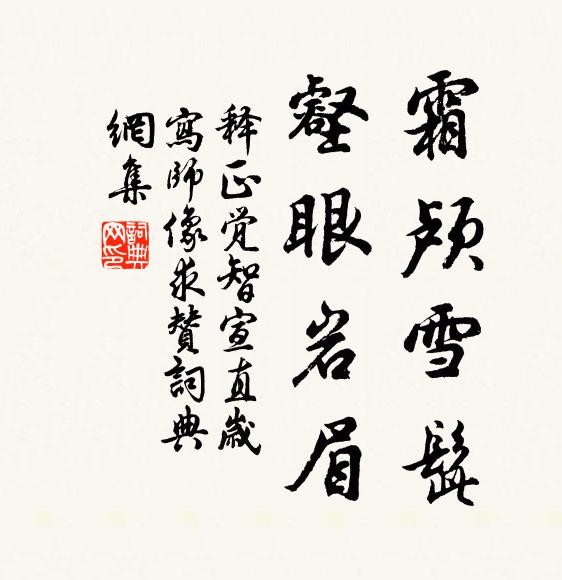 霜颅雪髭
壑眼岩眉
释正觉智宣直岁
写师像求赞词典
网集
词典网印